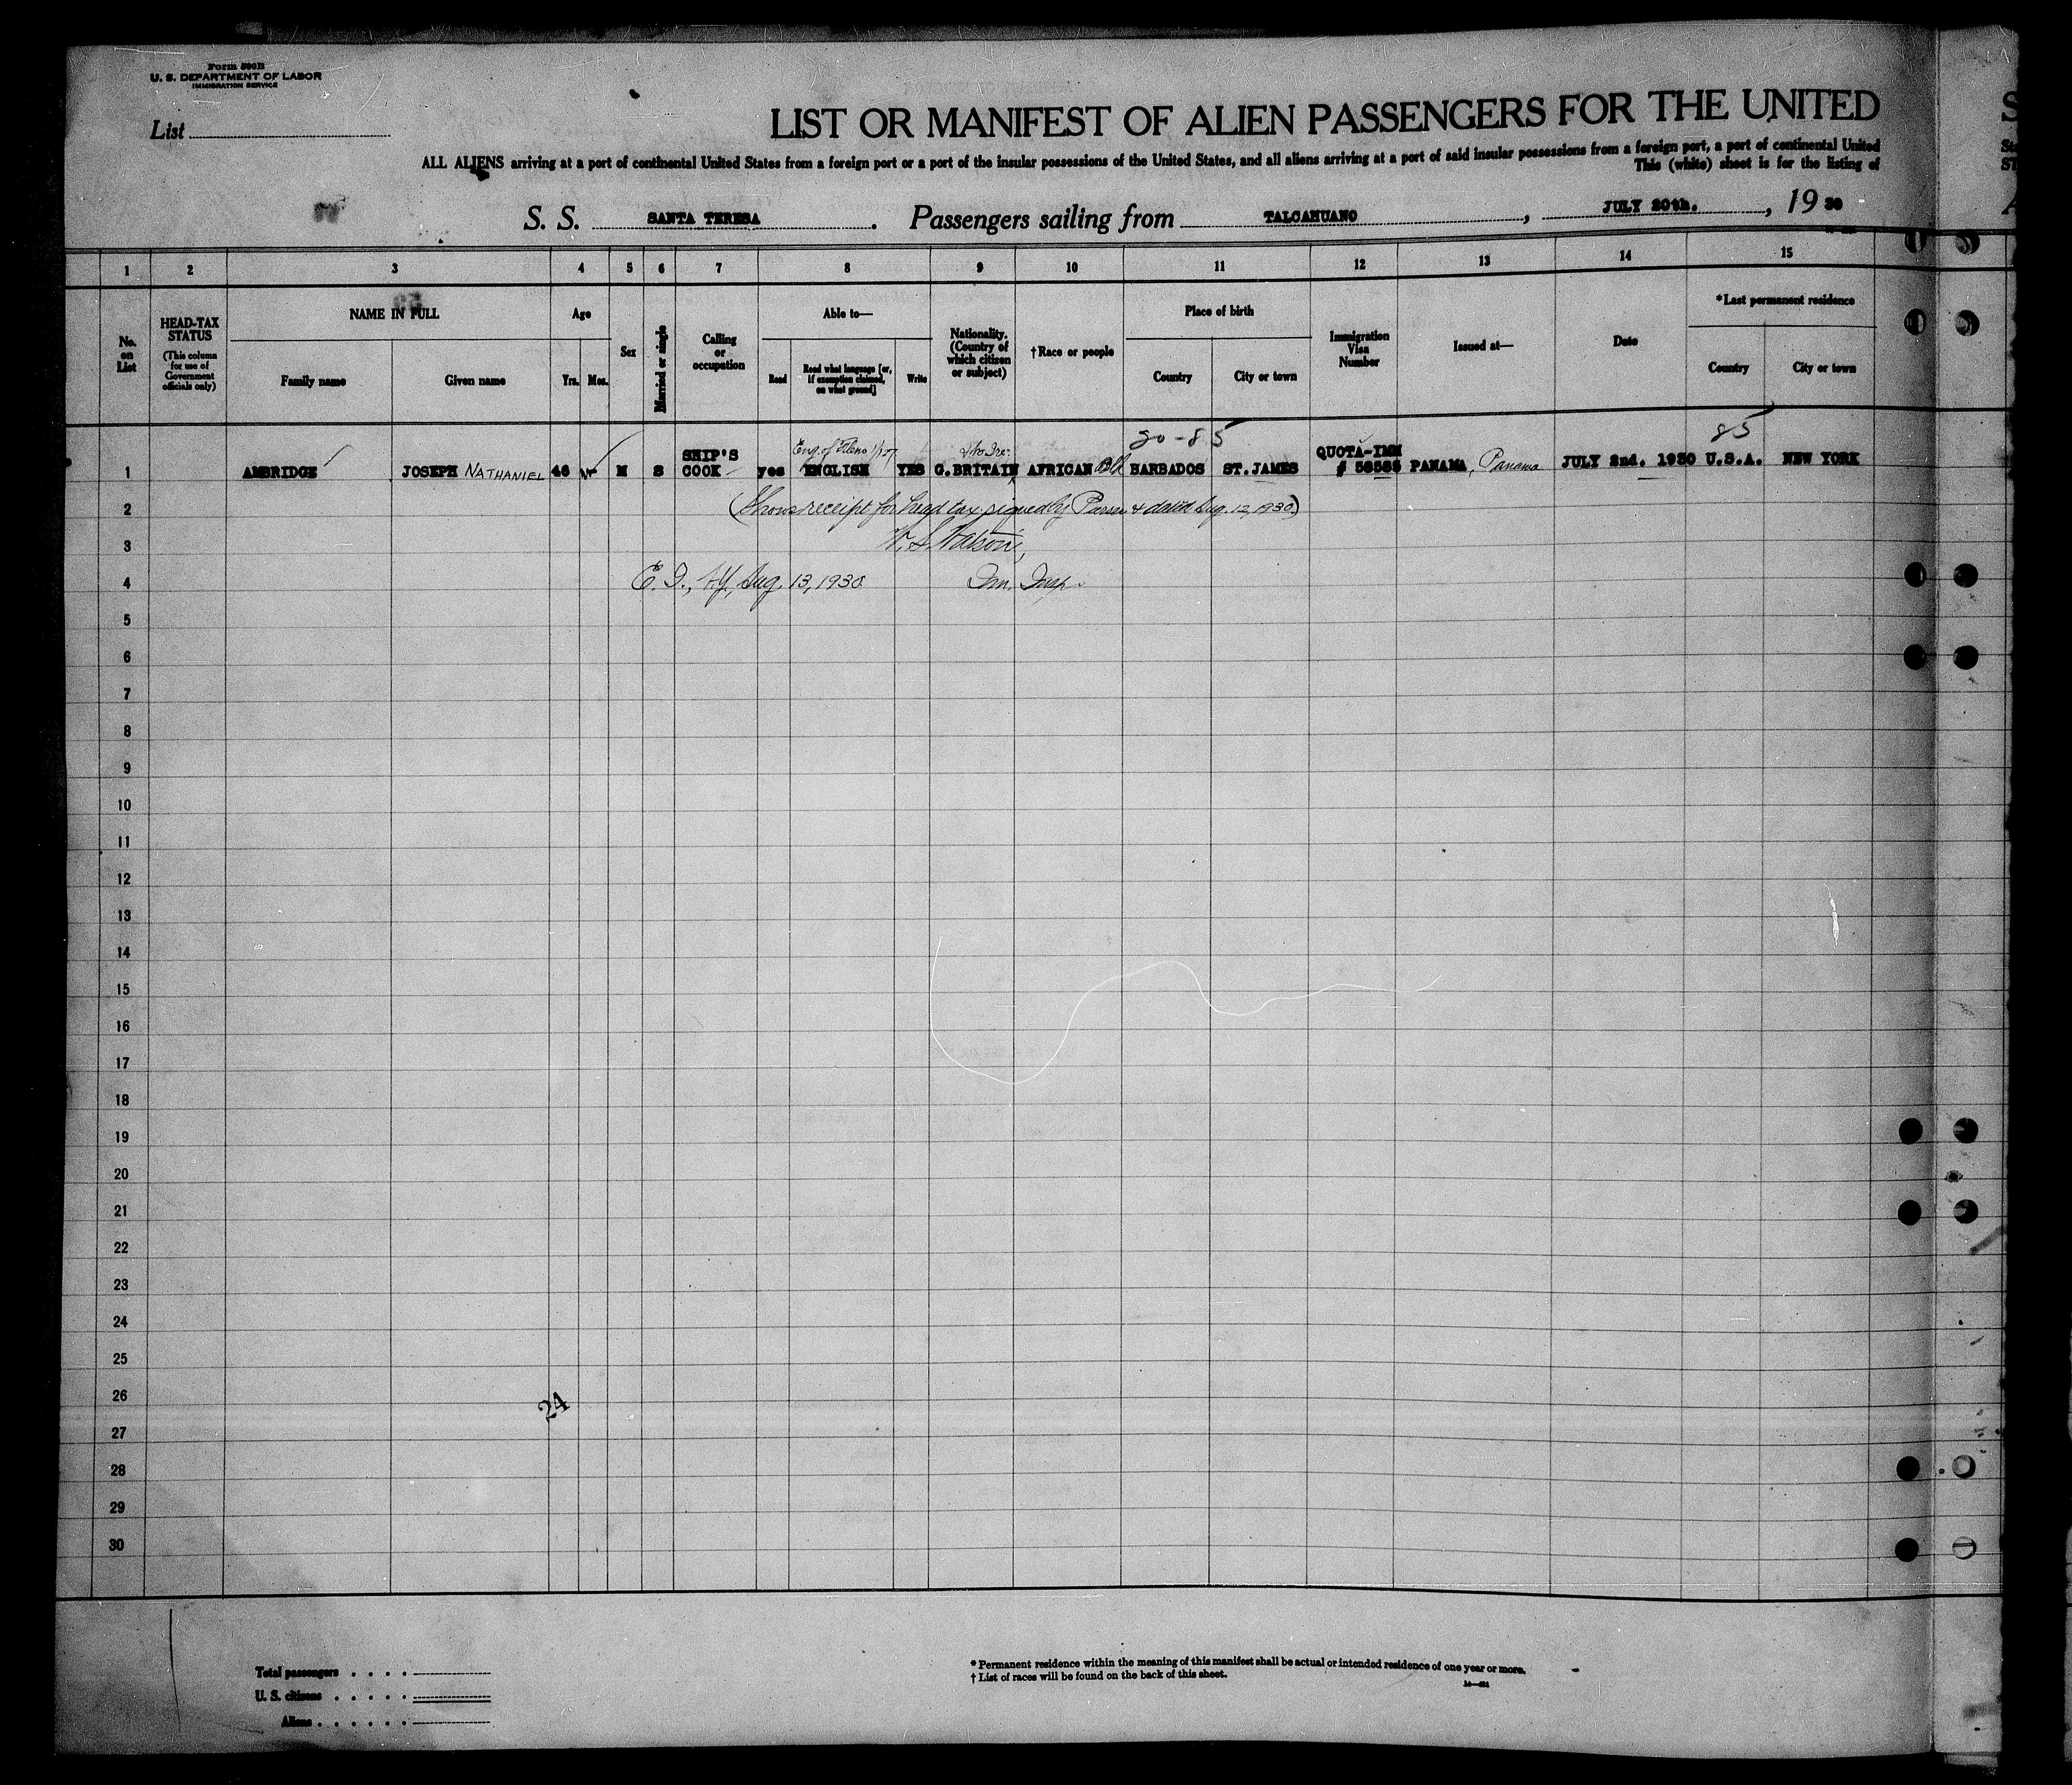 Form 500B
U. S. DEPARTMENT OF LABOR
IMMIGRATION SERVICE
List
LIST OR MANIFEST OF ALIEN PASSENGERS FOR THE UNITED
ALL ALIENS arriving at a port of continental United States from a foreign port or a port of the insular possessions of the United States, and all aliens arriving at a port of said insular possessions from a foreign port, a port of continental United
This (white) sheet is for the listing of
S. S. SANTA TERESA. Passengers sailing from TALCAHUANO, JULY 20th., 19 30
1 2 3 4 5 6 7 8 9 10 11 12 13 14 15
No. on List
HEAD-TAX STATUS (This column for use of Government officials only)
NAME IN FULL
Family name Given name
Age
Yrs. Mos.
Sex
Married or single
Calling or occupation
Able to—
Read Read what language [or, if exemption claimed, on what ground] Write
Nationality. (Country of which citizen or subject)
†Race or people
Place of birth
Country City or town
Immigration Visa Number
Issued at—
Date
*Last permanent residence
Country City or town
20-85 85
1 AMBRIDGE JOSEPH NATHANIEL 46 M S SHIP'S COOK yes ENGLISH YES G.BRITAIN AFRICAN Blk BARBADOS ST.JAMES QUOTA-IMM PANAMA, Panama JULY 2nd. 1930 U.S.A. NEW YORK
2 (Shows receipt for head tax signed by Purser & dated Aug. 12, 1930)
3 W. S. Watson,
4 E. I., N.Y., Aug. 13, 1930. Im. Insp.
5
6
7
8
9
10
11
12
13
14
15
16
17
18
19
20
21
22
23
24
25
26
24
27
28
29
30
Total passengers
U. S. citizens
Aliens
* Permanent residence within the meaning of this manifest shall be actual or intended residence of one year or more.
† List of races will be found on the back of this sheet.